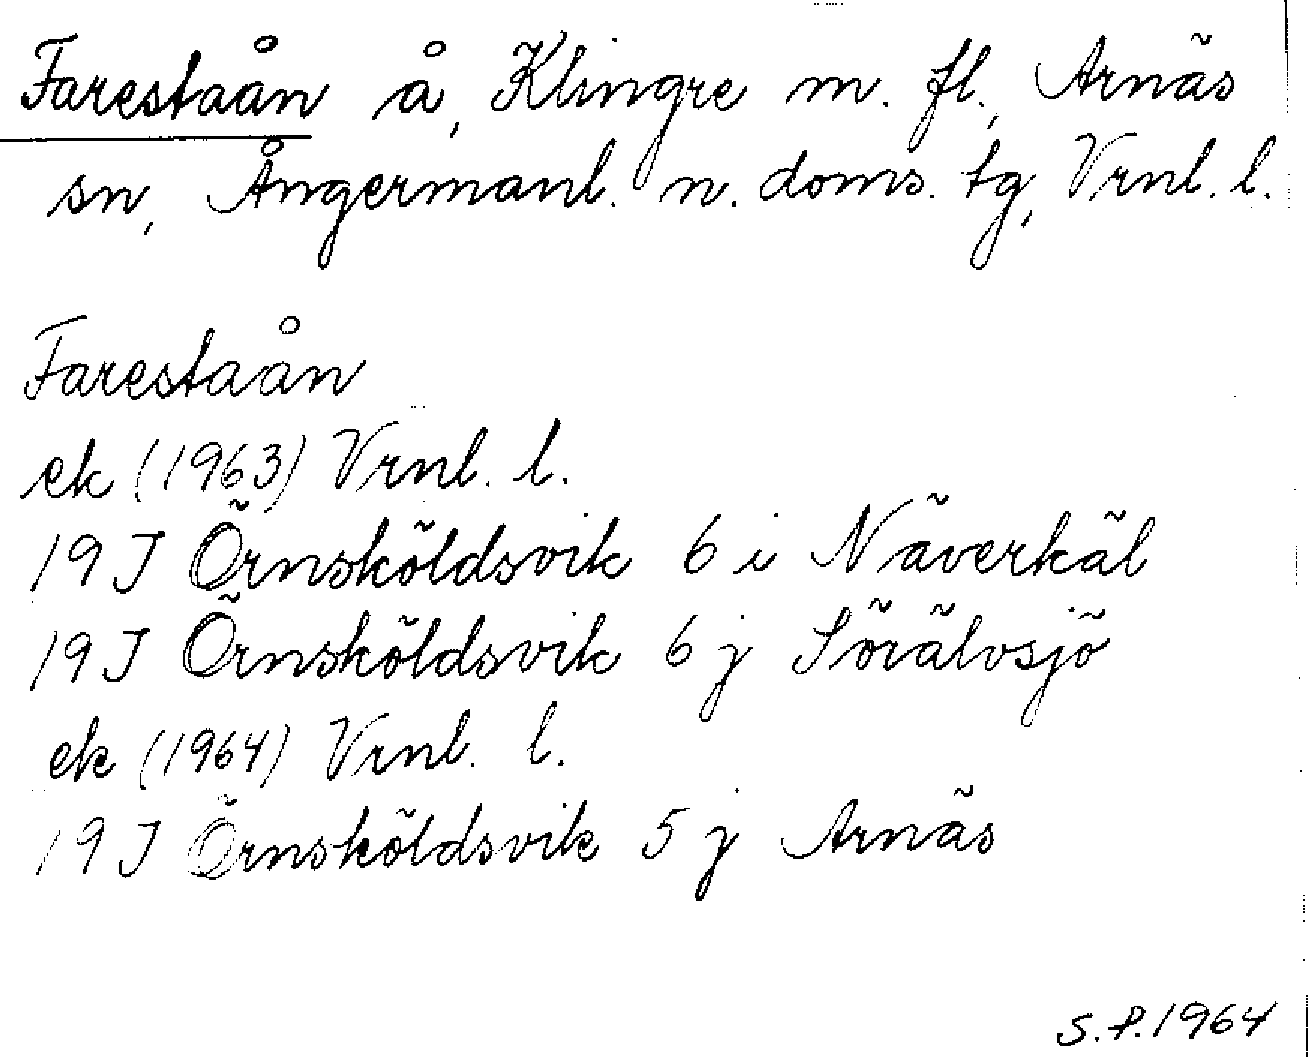 Farestaån å, Klingre m. fl., Arnäs
sn, Ångermanl. n. doms. tg, Vrnl. l.
Farestaån
ek (1963) Vrnl. l.
19J Örnsköldsvik 6 i Näverkäl
19J Örnsköldsvik 6 j Sörälvsjö
ek (1964) Vrnl. l.
19J Örnsköldsvik 5 j Arnäs
S.P. 1964